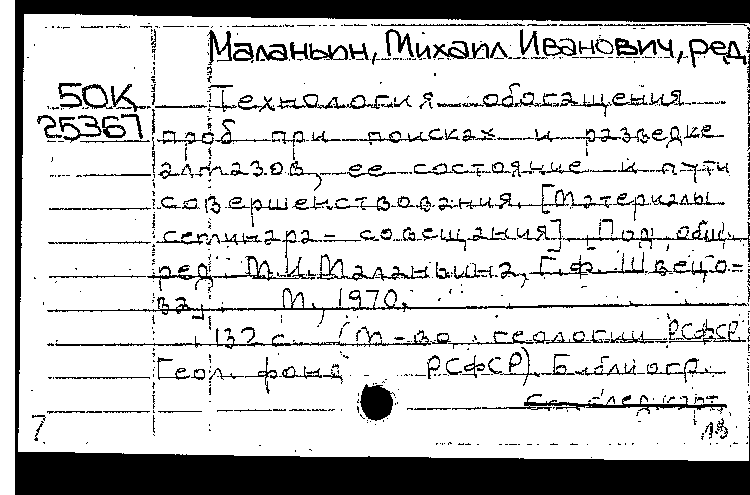 Маланьин, Михаил Иванович, ред.
50К
25367
Технология обогащения
проб при поисках и разведке
алмазов, ее состояние и пути
совершенствования. [Материалы
семинара-совещания]. Под общ.
ред. М.И.Маланьина, Г.Ф. Швецо=
ва. М., 1970.
132 с. (М-во геологии РСФСР
Геол. фонд РСФСР). Библиогр.
См. след. карт.
7